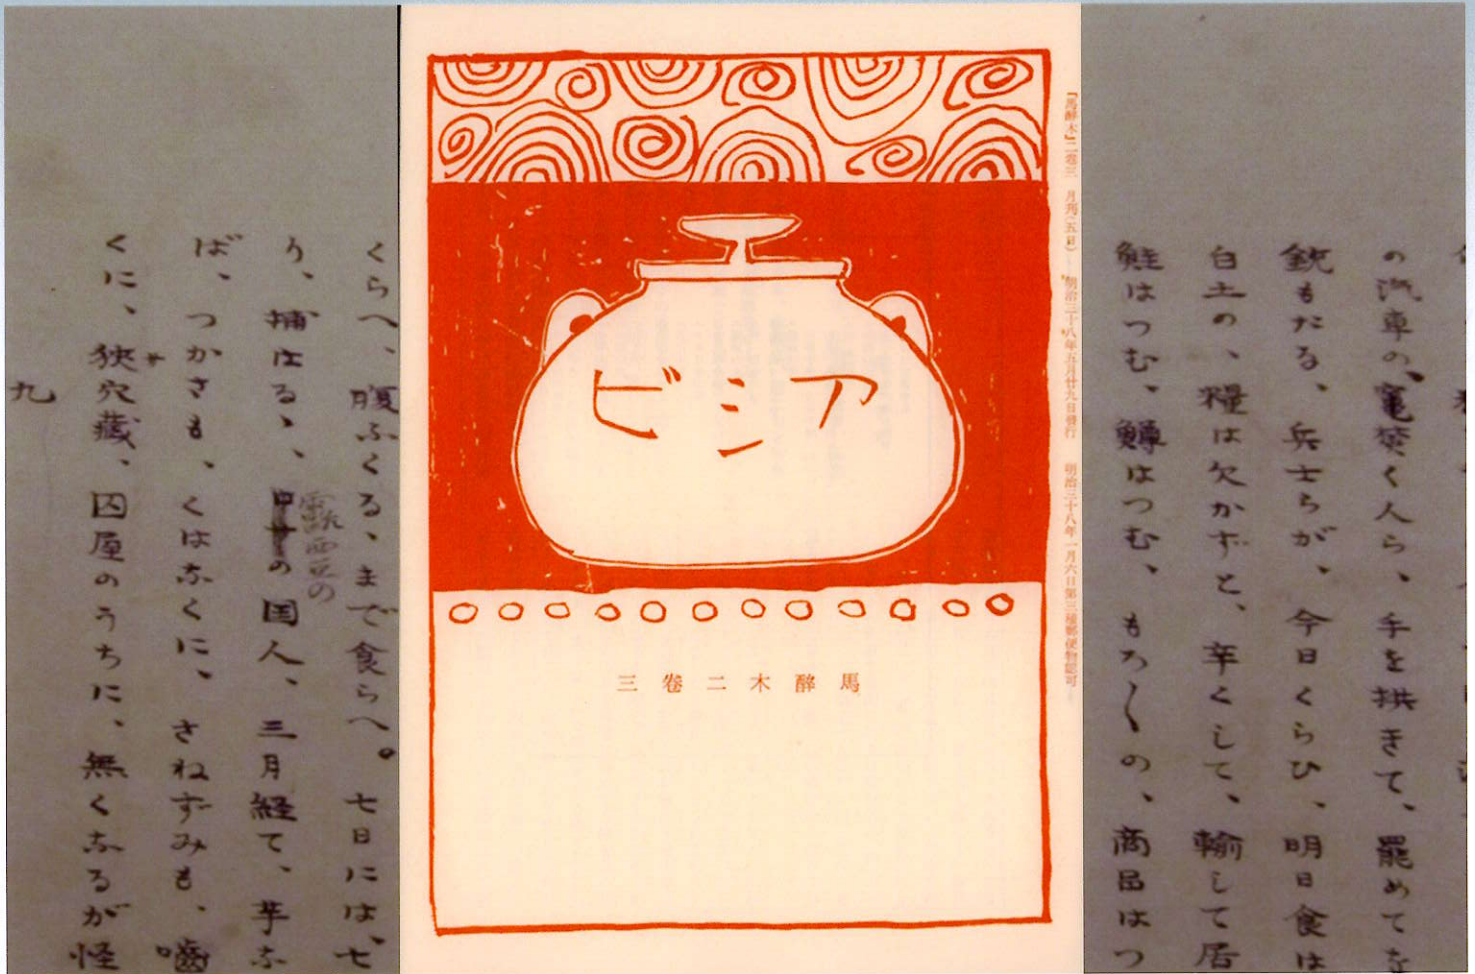 の汽車の、竃焚く人ら、手を拱きて、罷めてを
銃もだる、兵士らが、今日くらひ、明日食は
白土の、糧は欠かずと、辛くして、輸して居
鮭はつむ、鱒はつむ、もろ〳〵の、商品はつ
『馬酔木』二卷三 月刊(五日) 明治三十八年五月廿九日發行 明治三十八年一月六日第三種郵便物認可
アシビ
馬酔木二卷三
くらへ、腹ふくる、まで食らへ。七日には、七
り、捕はる、、の国人、三月経て、芋な
露西亜の
ば、つかさも、くはなくに、さねずみも、嚙
くに、狭穴蔵、囚屋のうちに、無くなるが怪
九